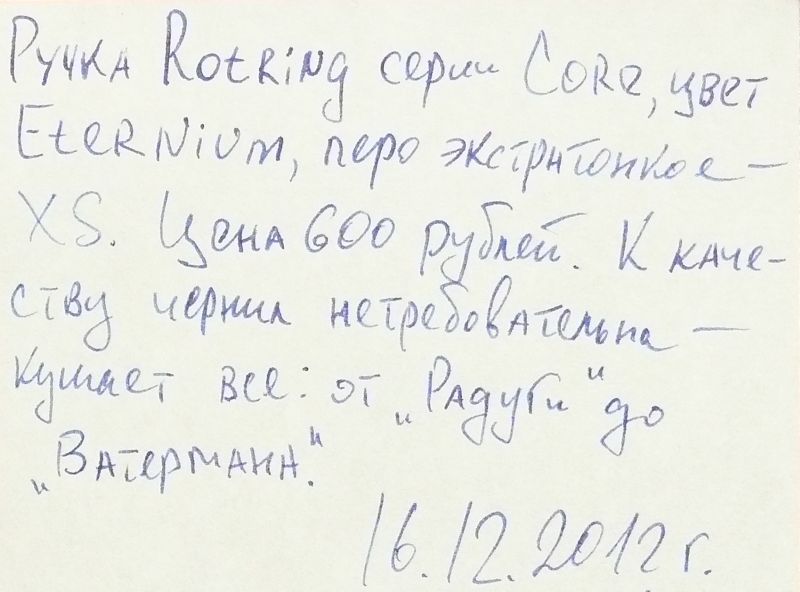 Ручка Rotring серии Core, цвет
Eternium, перо экстратонкое —
XS. Цена 600 рублей. К каче-
ству чернил нетребовательна —
кушает все: от „Радуги" до
„Ватермана."
16.12.2012 г.